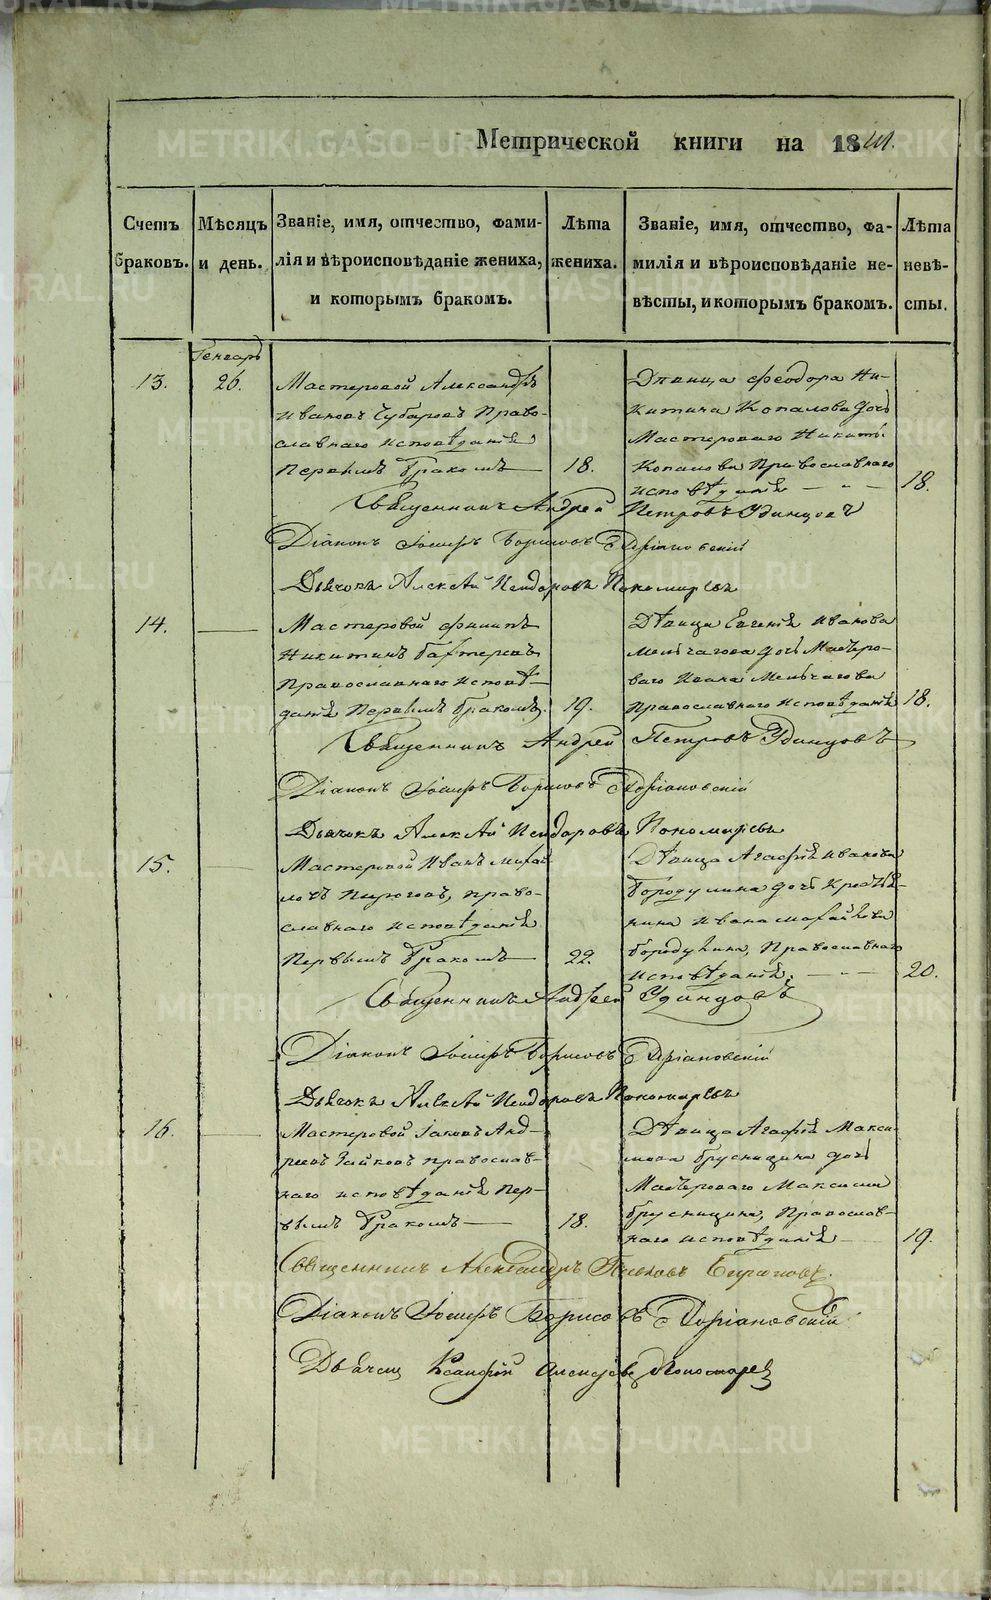 Метрической книги на 1841.
Счетъ браковъ.
Мѣсяцъ и день.
Званіе, имя, отчество, фами-
лія и вѣроисповѣданіе жениха,
и которымъ бракомъ.
Лѣта
жениха.
Званіе, имя, отчество, фа-
милія и вѣроисповѣданіе не-
вѣсты, и которымъ бракомъ.
Лѣта
невѣ-
сты.
Генварь
13.
26.
Мастеровой Александръ
Ивановъ Чубаровъ Право-
славнаго исповѣданія
Первымъ бракомъ
18.
Дѣвица Феодора Ни-
китина Копалова дочь
Мастероваго Никиты
Копалова Православнаго
исповѣданія
18.
Священникъ Андрей Петровъ Удинцовъ
Діаконъ Іосифъ Борисовъ
Дьячокъ Алексѣй Исидоровъ Пономаревъ
14.
Мастеровой Филипъ
Никитинъ
Православнаго исповѣ-
данія Первымъ бракомъ
19.
Дѣвица Евгенія Иванова
Мельчагова дочь Мастеро-
ваго Ивана Мельчагова
Православнаго исповѣданія
18.
Священникъ Андрей Петровъ Удинцовъ
Діаконъ Іосифъ Борисовъ
Дьячокъ Алексѣй Исидоровъ Пономаревъ
15.
Мастеровой Иванъ Михай-
ловъ Пироговъ, право-
славнаго исповѣданія
Первымъ бракомъ
22.
Дѣвица Агафія Иванова
Бородулина дочь крестья-
нина Ивана Михайлова
Бородулина, Православнаго
исповѣданія.
20.
Священникъ Андрей Удинцовъ
Діаконъ Іосифъ Борисовъ
Дьячокъ Алексѣй Исидоровъ Пономаревъ
16.
Мастеровой Іаковъ Анд-
реевъ Зайковъ православ-
наго исповѣданія Пер-
вымъ бракомъ
18.
Дѣвица Агафія Макси-
мова Брусницина дочь
Мастероваго Максима
Брусницина, Православ-
наго исповѣданія
19.
Священникъ Александръ
Діаконъ Іосифъ Борисовъ
Ксанфій Алексѣевъ Пономаревъ
METRIKI.GASO-URAL.RU